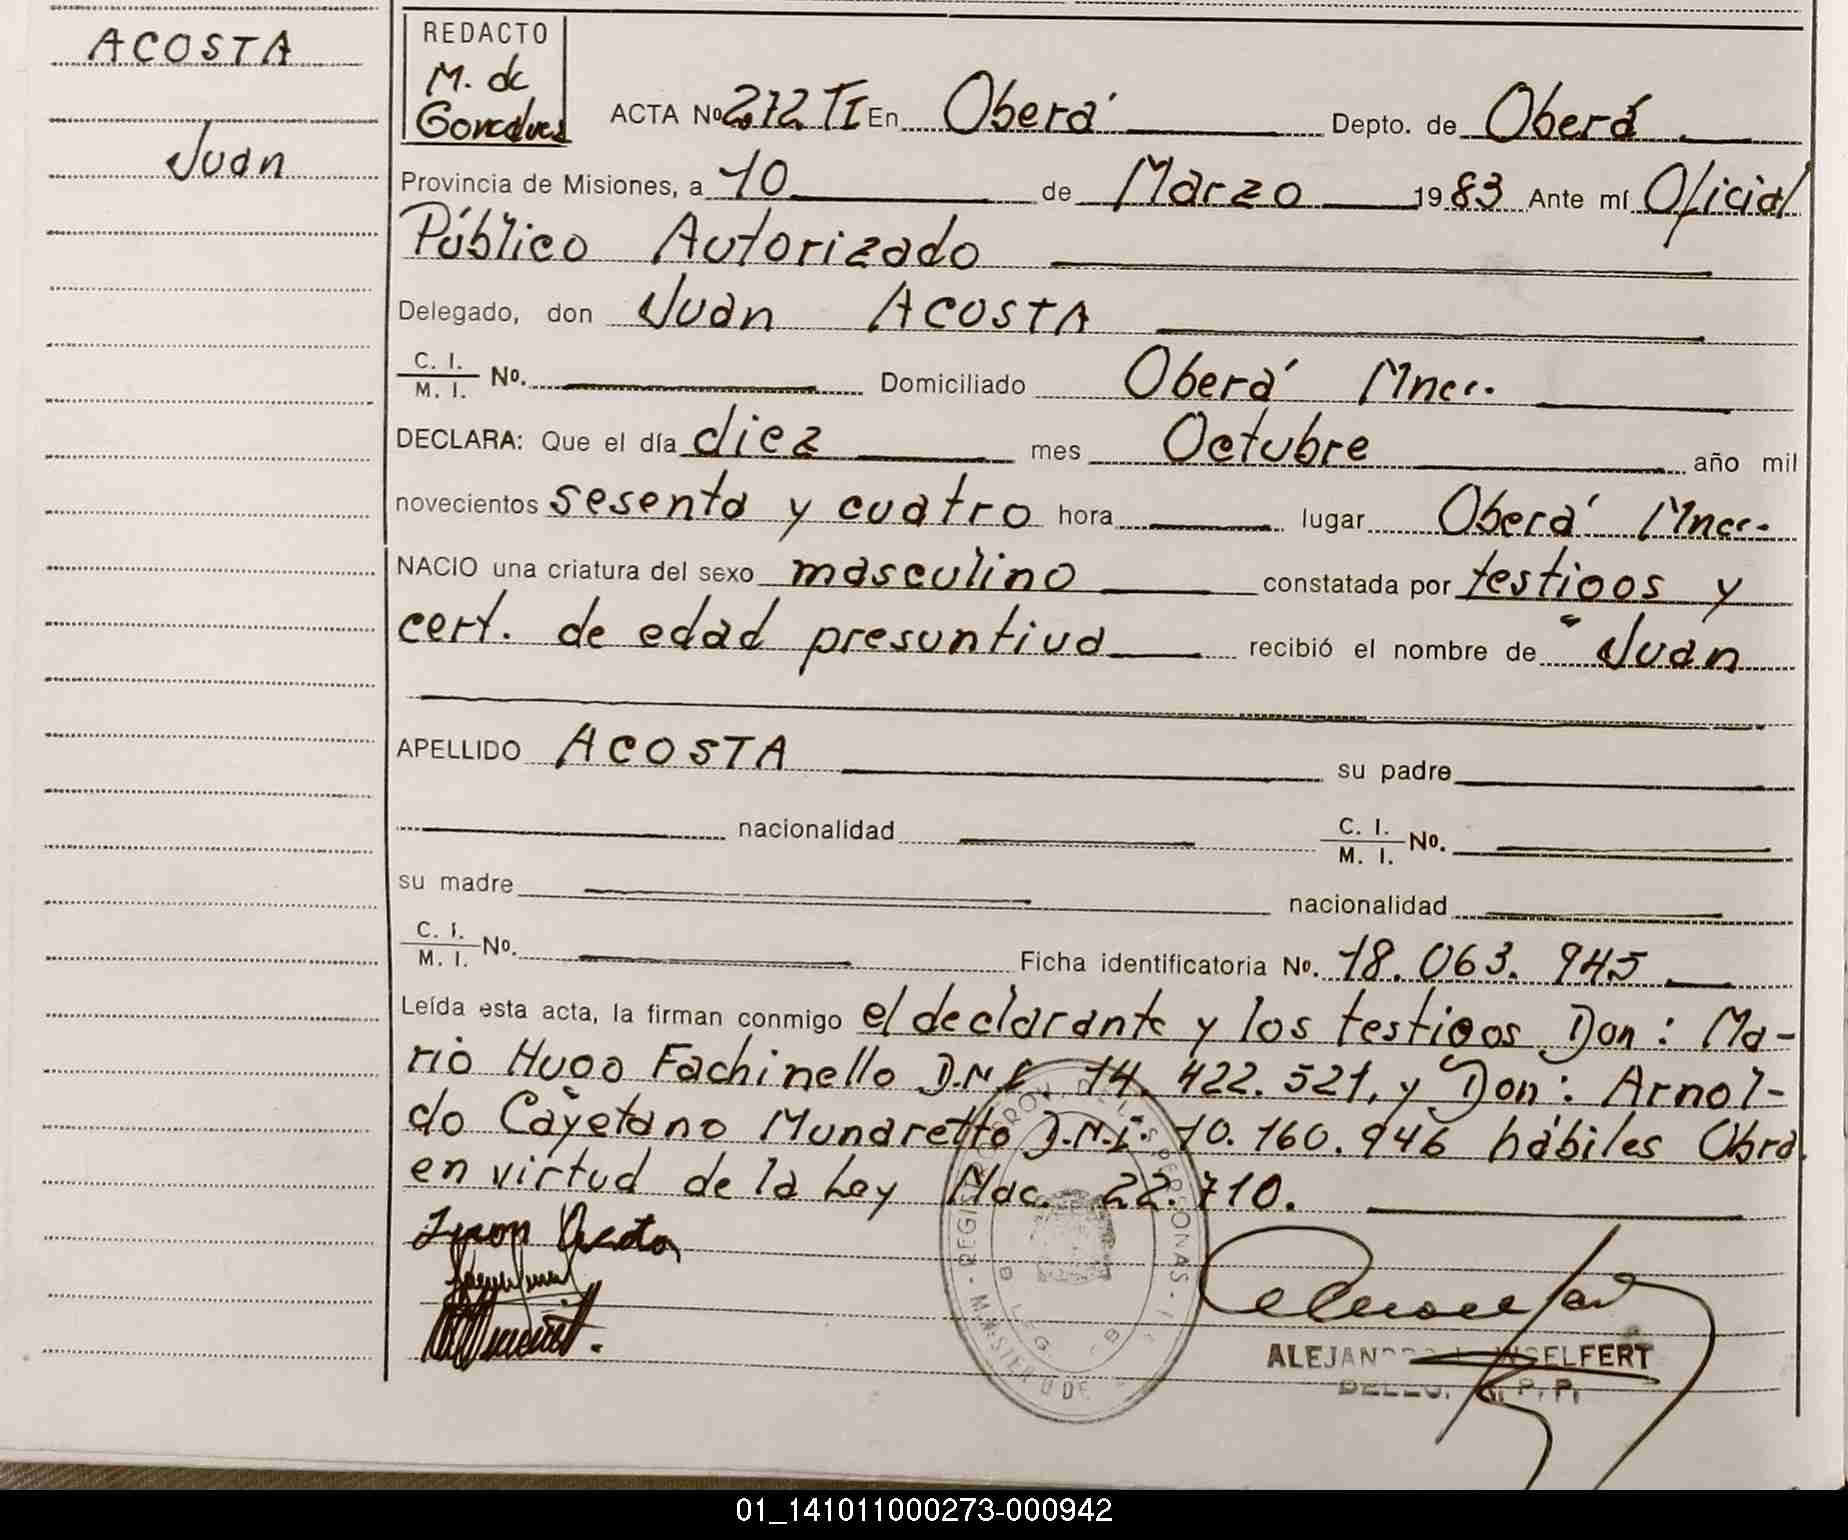 ACOSTA
Juan
REDACTO
M. de
Goncalves
ACTA Nº 272 TI En Oberá Depto. de Oberá
Provincia de Misiones, a 10 de Marzo 1983 Ante mí Oficial
Público Autorizado
Delegado, don Juan ACOSTA
C. I.
M. I. Nº. Domiciliado Oberá Mnes.
DECLARA: Que el día diez mes Octubre año mil
novecientos sesenta y cuatro hora lugar Oberá Mnes.
NACIO una criatura del sexo masculino constatada por testigos y
cert. de edad presuntiva recibió el nombre de " Juan
APELLIDO ACOSTA su padre
nacionalidad C. I.
M. I. Nº.
su madre nacionalidad
C. I.
M. I. Nº. Ficha identificatoria Nº. 18.063.945
Leída esta acta, la firman conmigo el declarante y los testigos Don: Ma-
rio Hugo Fachinello D.N.I. 14.422.521, y Don: Arnol-
do Cayetano Munaretto D.N.I. 10.160.946 hábiles Obra
en virtud de la Ley Nac. 22.710.
Juan Acosta
ALEJANDRO SELFERT
01_141011000273-000942